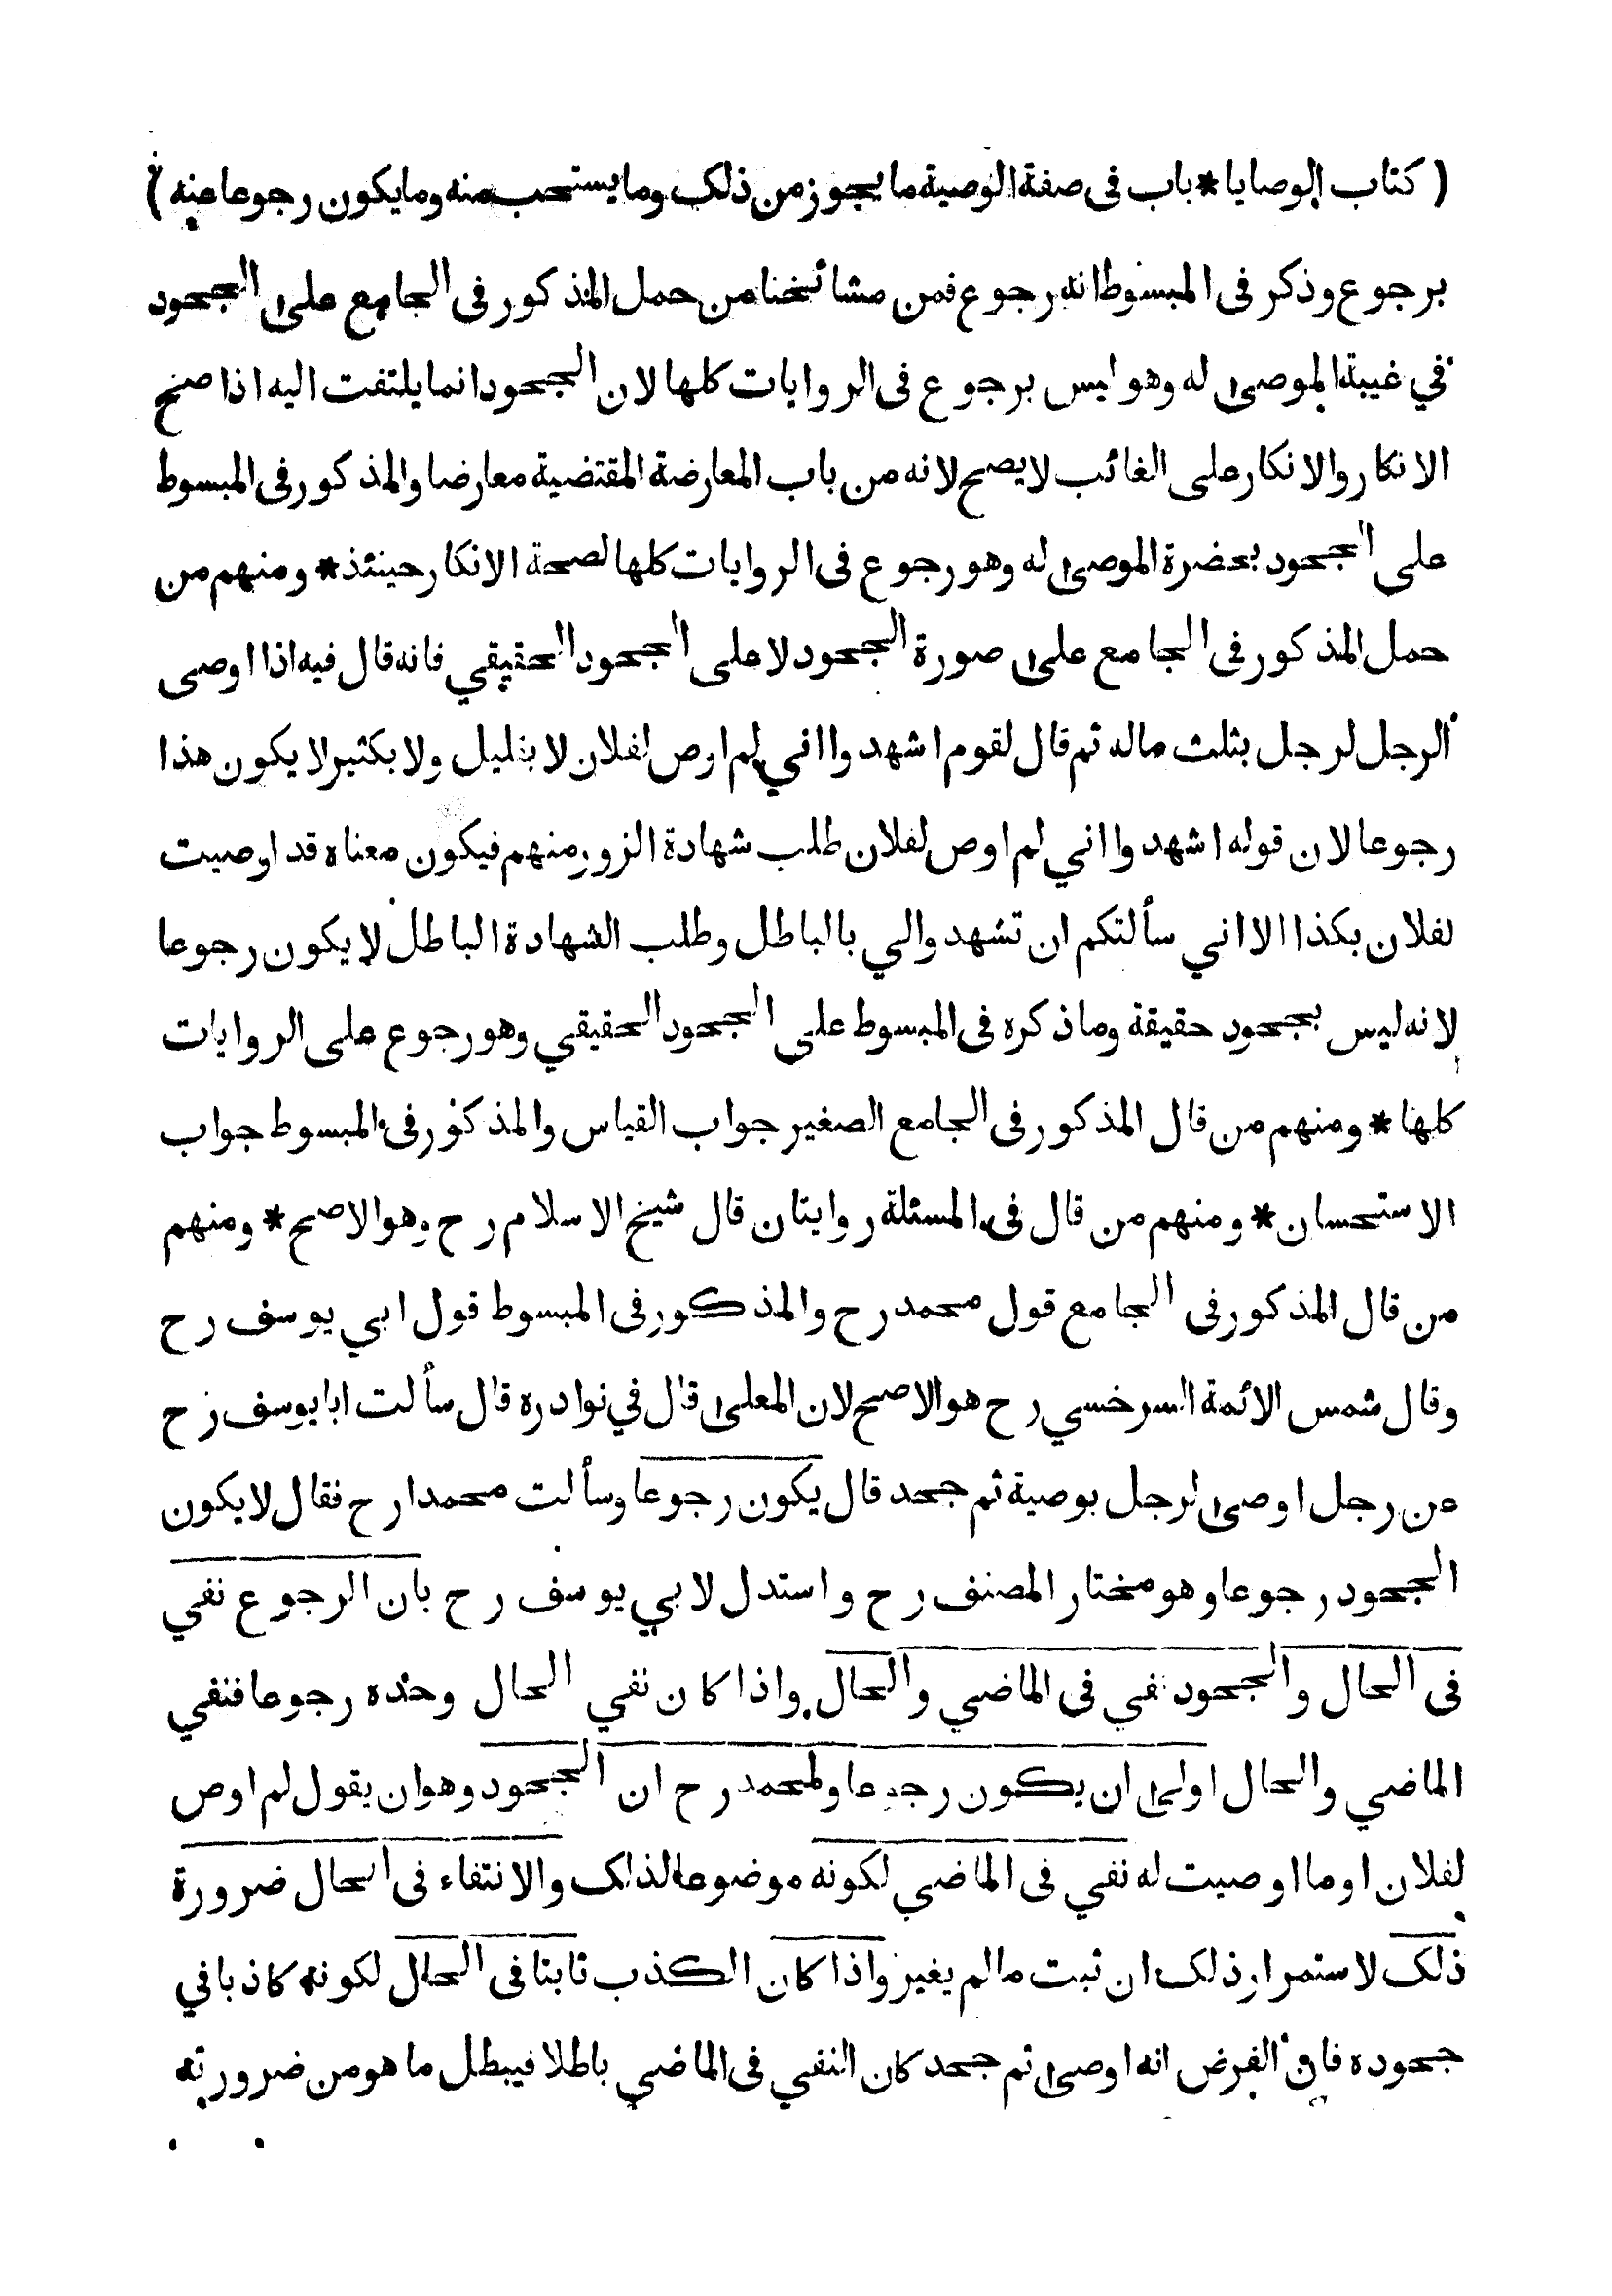 ( كتاب الوصايا * باب فى صفة الوصية ما يجوز من ذلك وما يستحب منه وما يكون رجوعا عنه )
برجوع وذكر فى المبسوط انه رجوع فمن مشائخنا من حمل المذكور فى الجامع على الجحود
في غيبة الموصى له وهو ليس برجوع فى الروايات كلها لان الجحود انما يلتفت اليه اذا صح
الانكار والانكار على الغائب لا يصح لانه من باب المعارضة المقتضية معارضا والمذكور فى المبسوط
على الجحود بحضرة الموصى له وهو رجوع فى الروايات كلها لصحة الانكار حينئذ * ومنهم من
حمل المذكور فى الجامع على صورة الجحود لا على الجحود الحقيقي فانه قال فيه اذا اوصى
الرجل لرجل بثلث ماله ثم قال لقوم اشهدوا اني لم اوص لفلان لا بقليل ولا بكثير لا يكون هذا
رجوعا لان قوله اشهدوا اني لم اوص لفلان طلب شهادة الزور منهم فيكون معناه قد اوصيت
لفلان بكذا الا اني سألتكم ان تشهدوا لي بالباطل وطلب الشهادة الباطل لا يكون رجوعا
لانه ليس بجحود حقيقة وما ذكره فى المبسوط على الجحود الحقيقي وهو رجوع على الروايات
كلها * ومنهم من قال المذكور فى الجامع الصغير جواب القياس والمذكور فى المبسوط جواب
الاستحسان * ومنهم من قال فى المسئلة روايتان قال شيخ الاسلام رح وهو الاصح * ومنهم
من قال المذكور فى الجامع قول محمد رح والمذكور فى المبسوط قول ابي يوسف رح
وقال شمس الائمة السرخسي رح هو الاصح لان المعلى قال في نوادره قال سألت ابا يوسف رح
عن رجل اوصى لرجل بوصية ثم جحد قال يكون رجوعا وسألت محمدا رح فقال لا يكون
الجحود رجوعا وهو مختار المصنف رح واستدل لابي يوسف رح بان الرجوع نفي
فى الحال والجحود نفي فى الماضي والحال واذا كان نفي الحال وحده رجوعا فنفي
الماضي والحال اولى ان يكون رجوعا ولمحمد رح ان الجحود وهو ان يقول لم اوص
لفلان او ما اوصيت له نفي فى الماضي لكونه موضوعا لذلك والانتفاء فى الحال ضرورة
ذلك لاستمرار ذلك ان ثبت ما لم يغير واذا كان الكذب ثابتا فى الحال لكونه كاذبا في
جحوده فان الفرض انه اوصى ثم جحد كان النفي فى الماضي باطلا فيبطل ما هو من ضرورته